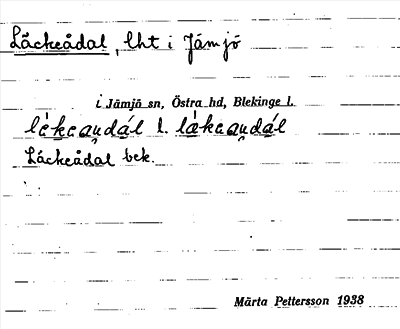 Läckeådal, lht i Jämjö
i Jämjö sn, Östra hd, Blekinge l.
lȧkeaųdál l. lȧkeaųdál
Läckeådal bek.
Märta Pettersson 1938